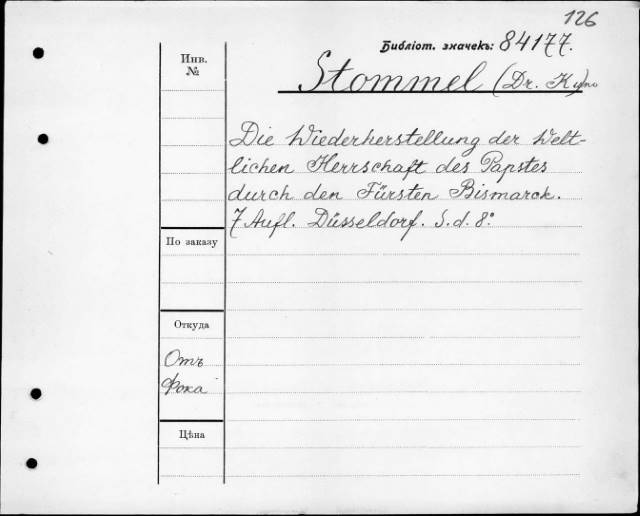 126
Библіот. значекъ: 84177.
Инв.
№
Stommel (Dr. Kuno)
Die Wiederherstellung der Welt-
lichen Herrschaft des Papstes
durch den Fürsten Bismarck.
7 Aufl. Düsseldorf. S. d. 8°
По заказу
Откуда
Отъ
Фока
Цѣна